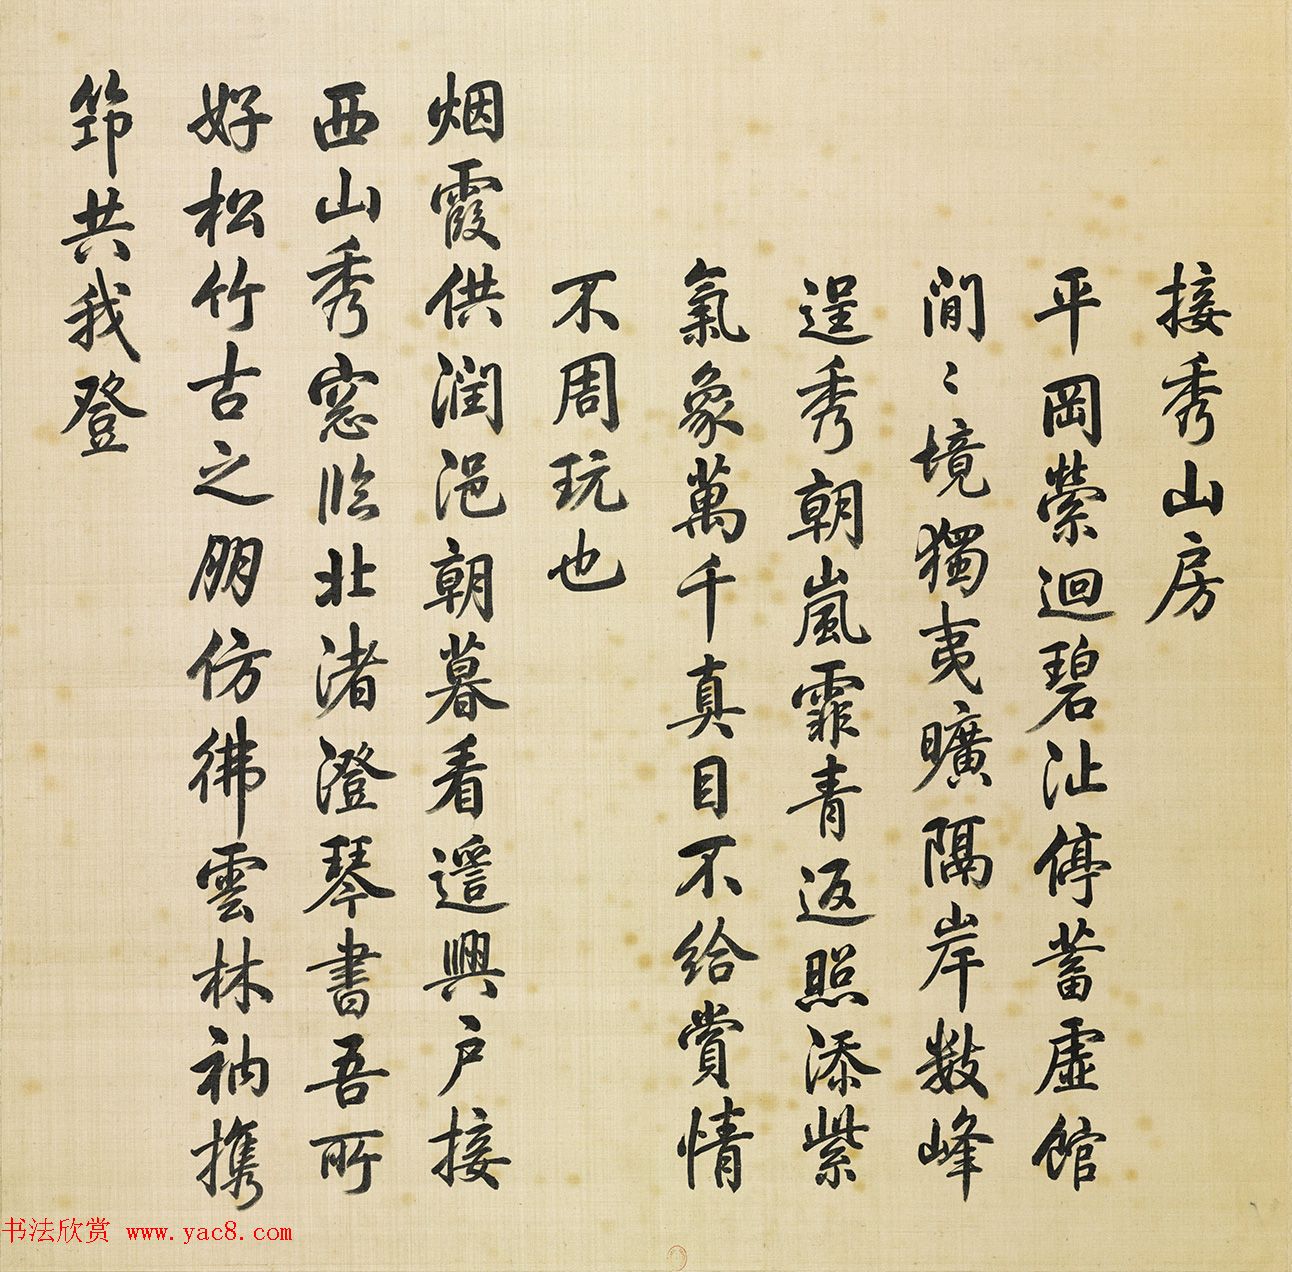 接秀山房
平岡縈迴碧沚停蓄虛館
閒〻境獨夷曠隔岸數峰
逞秀朝嵐霏青返照添紫
氣象萬千真目不給賞情
不周玩也
烟霞供潤浥朝暮看遙興戶接
西山秀窓臨北渚澄琴書吾所
好松竹古之朋仿彿雲林衲携
筇共我登
书法欣赏 www.yac8.com